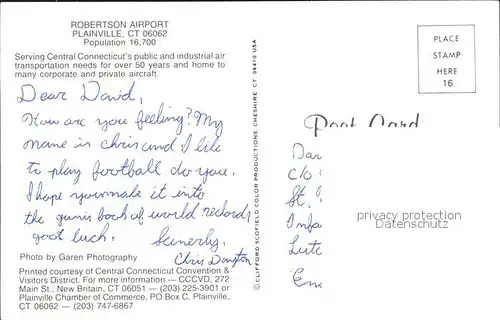 ROBERTSON AIRPORT
PLAINVILLE, CT 06062
Population 16,700
Serving Central Connecticut's public and industrial air
transportation needs for over 50 years and home to
many corporate and private aircraft.
Dear David,
How are you feeling? My
name is Chris and I like
to play football do you.
I hope you make it into
the gunis book of world records
goot luck. Sinerly,
Chris
Photo by Garen Photography
Printed courtesy of Central Connecticut Convention &
Visitors District. For more information — CCCVD, 272
Main St., New Britain, CT 06051 — (203) 225-3901 or
Plainville Chamber of Commerce, PO Box C. Plainville,
CT 06062 — (203) 747-6867
© CLIFFORD SCOFIELD COLOR PRODUCTIONS, CHESHIRE, CT 06410 USA
PLACE
STAMP
HERE
16
Post Card
Da
C/O
St.
Infa
Lut
privacy protection
Datenschutz